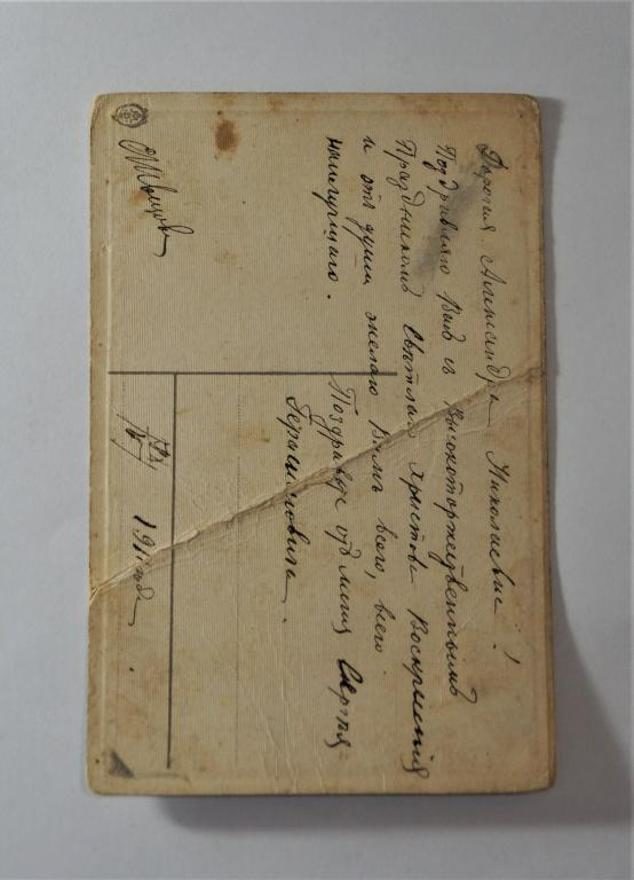 Дорогая Александра Николаевна!
Поздравляю Вас с Высокоторжественнымъ
Праздникомъ Свѣтлаго Христова Воскресенія
и отъ души желаю Вамъ всего, всего
наилучшаго.
Поздравьте отъ меня Сергѣя
Герасимовича.
1911 года.